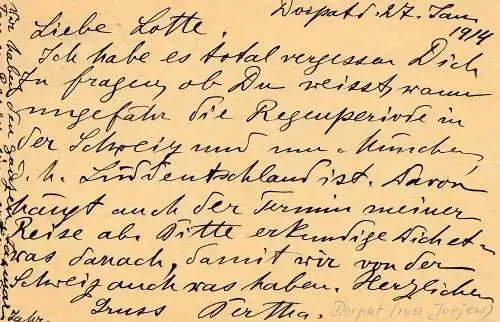 Dorpat d. 27. Jan
1914
Liebe Lotte,
Ich habe es total vergessen Dich
zu fragen, ob Du weisst, wann
ungefähr die Regenperiode in
der Schweiz und um München,
d. h. Süddeutschland ist. Davon
hängt auch der Termin meiner
Reise ab. Bitte erkundige Dich et-
was danach, damit wir von der
Schweiz auch was haben. Herzlichen
Gruss Bertha.
Dorpat (russ Jurjew)
Wir haben den ganzen
Jahr.